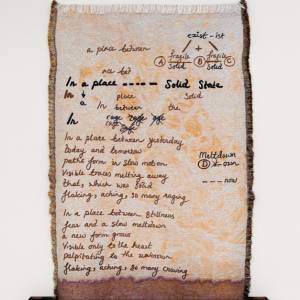 exist - ist
a place between
+
fragile fragile
Solid Solid
A B C
In a place ----- Solid State
In a place Solid
In between the
In
In a place between yesterday
today and tomorrow
paths form in slow motion
Visible traces melting away
that, which was solid
flaking, aching, so many raging
Meltdown
D
--- now
In a place between Stillness
fear and a slow meltdown
a new form grows
Visible only to the heart
palpitating to the unknown
flaking, aching, so many craving